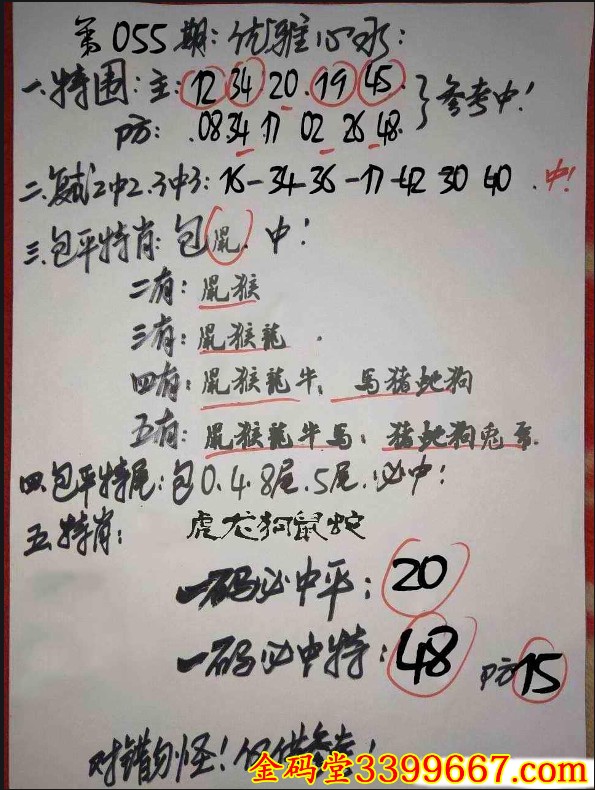 第055期:优雅心水:
一.特围:主:12 34 20.19 45. }参考中!
防: .08 34 17 02 26 48.
二.复式2中2.3中3:16-34-36-17-42 30 40 .中!
三.包平特肖:包鼠.中!
二有:鼠猴
三有:鼠猴龍.
四有:鼠猴龍牛,馬猪蛇狗
五有:鼠猴龍牛馬;猪蛇狗兔
四.包平特尾:包0.4.8尾.5尾.必中!
五.特肖: 虎龙狗鼠蛇
一码必中平:20
一码必中特:48 防15
对错勿怪!仅供参考!
金码堂3399667.com